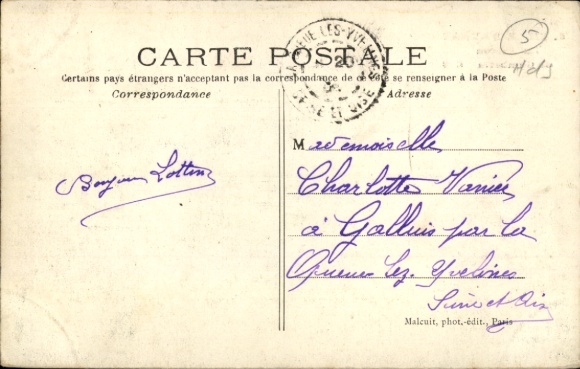 5
CARTE POSTALE
Certains pays étrangers n'acceptant pas la correspondance de ce côté se renseigner à la Poste
Correspondance
Adresse
LES-YVELINES
20
SEINE ET OISE
Mademoiselle
Charlotte Vanier
à Galluis par la
Queue Lez. Yvelines
Seine et Oise
Bonjour
Malcuit, phot.-édit., Paris